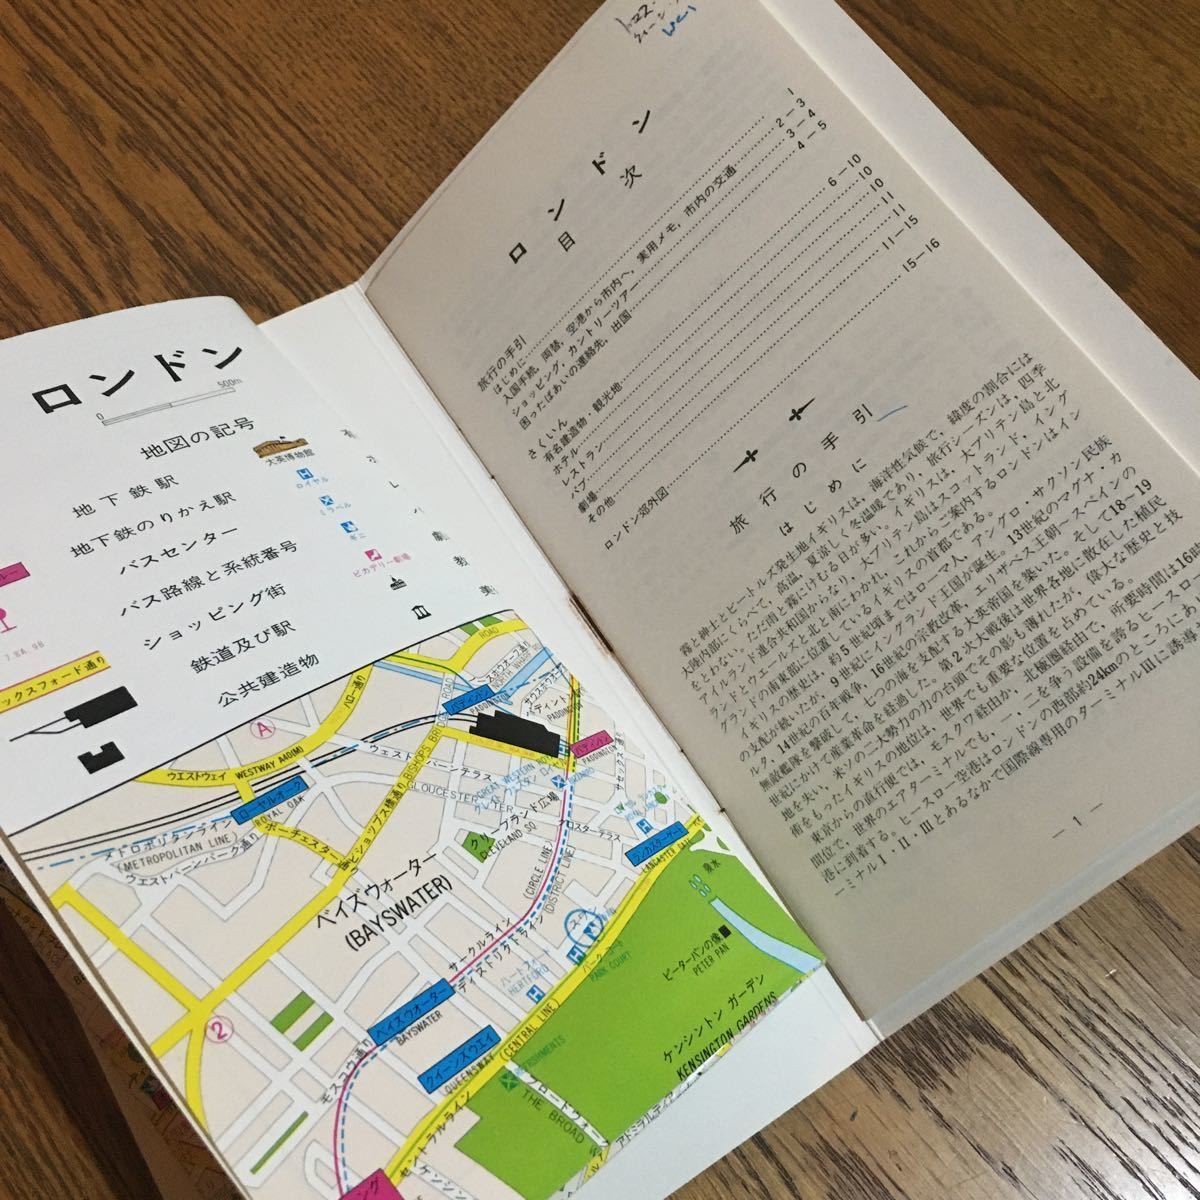 ロンドン
0 500m
地図の記号
地下鉄駅
地下鉄のりかえ駅
バスセンター
バス路線と系統番号
ショッピング街
鉄道及び駅
公共建造物
大英博物館
ロイヤル
ミラベル
ギニ
ピカデリー劇場
7.8A.98
ックスフォード通り
ROAD
パディントン
PADDINGTON
パディントン
PADDINGTON
A
ハロー通り
ウエストウェイ WESTWAY A40(M)
ローヤルオーク
ROYAL OAK
メトロポリタンライン
(METROPOLITAN LINE)
ウエストバーンパーク通り
ポーチェスター通り
ビショップス橋通り
BISHOPS BRIDGE ROAD
ウェストバーンテラス
GLOUCESTER TER
クリーブランド広場
CLEVELAND SQ
グロスターテラス
サセックス通り
ランカスターゲート
LANCASTER GATE
ベイズウォーター
(BAYSWATER)
サークルライン
(CIRCLE LINE)
ディストリクトライン
(DISTRICT LINE)
ハートフォード
HERTFORD
パークコート
PARK COURT
2
ベイズウォーター
BAYSWATER
クイーンズウエイ
QUEENSWAY
モスコウ通り
セントラルライン
(CENTRAL LINE)
泉水
ピーターパンの像
PETER PAN
ケンシントン ガーデン
KENSINGTON GARDENS
ブロードウォーク
THE BROAD W
REFRESHMENTS
ロンドン
目次
旅行の手引
はじめに 1
入国手続，両替，空港から市内へ，実用メモ，市内の交通 2−3
ショッピング，カントリーツアー 3−4
困ったばあいの連絡先，出国 4−5
さくいん
有名建造物・観光地 6−10
ホテル 10
レストラン 11
パブ 11
劇場 11
その他 11−15
ロンドン郊外図 15−16
旅行の手引
はじめに
霧と紳士とビートルズ発生地イギリスは，海洋性気候で，緯度の割合には
大陸内部にくらべて，高温，夏涼しく冬温暖であり，旅行シーズンは，四季
をとわない。ただ雨と霧にけむる日が多い。イギリスは，大ブリテン島と北
アイルランド連合共和国からなり，大ブリテン島はスコットランド，イング
ランドとウェールズと北と南にわかれ，これからご案内するロンドンはイン
グランドの南東部に位置しているイギリスの首都である。
イギリスの歴史は，約5世紀頃まではローマ人，アングロ・サクソン民族
の支配が続いたが，9世紀にイングランド王国が誕生。13世紀のマグナ・カ
ルタ，14世紀の百年戦争，16世紀の宗教改革，エリザベス王朝〜スペインの
無敵艦隊を撃破して，七つの海を支配する大英帝国を築いた。そして18〜19
世紀にかけて産業革命を経過した。第2次大戦後は世界各地に散在した植民
地を失い，米ソの二大勢力の台頭でその影も薄れたが，偉大な歴史と技
術をもったイギリスの地位は，世界でも重要な位置を占めている。
東京からの直行便では，モスクワ経由か，北極圏経由で，所要時間は16時
間位で，世界のエアターミナルでも，一，二を争う設備を誇るヒースロー空
港に到着する。ヒースロー空港はロンドンの西部約24kmのところにあり，タ
ーミナルⅠ・Ⅱ・Ⅲとあるなかで国際線専用のターミナルⅢに誘導
— 1 —